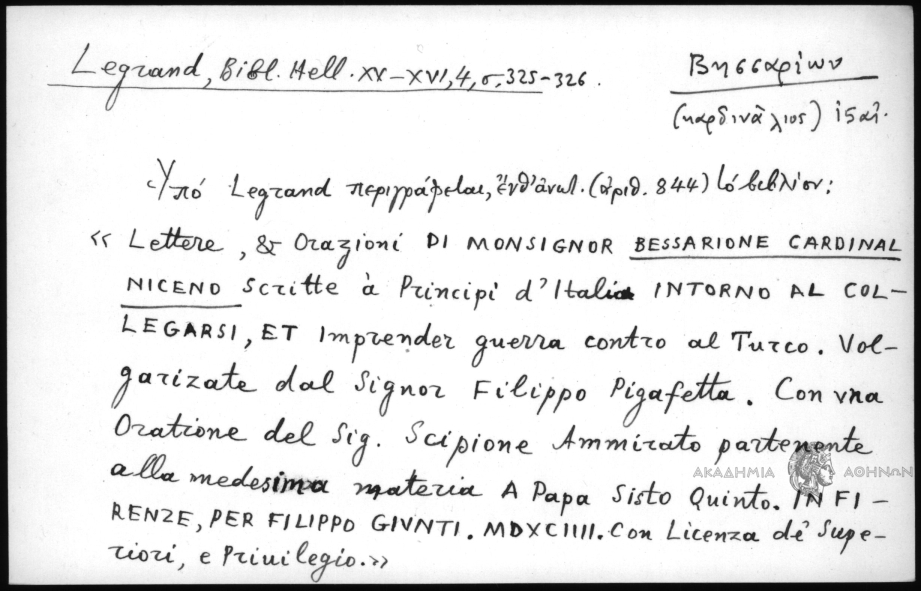 Legrand, Bibl. Hell. XV-XVI, 4, σ. 325-326.
Βησσαρίων
(καρδινάλιος) ἰταλ.
Ὑπό Legrand περιγράφεται, ἔνθ' ἀνωτ. (ἀριθ. 844) τό βιβλίον:
« Lettere, & Orazioni DI MONSIGNOR BESSARIONE CARDINAL
NICENO Scritte à Principi d'Italia INTORNO AL COL-
LEGARSI, ET Imprender guerra contro al Turco. Vol-
garizate dal Signor Filippo Pigafetta. Con vna
Oratione del Sig. Scipione Ammirato partenente
alla medesima materia A Papa Sisto Quinto. IN FI-
RENZE, PER FILIPPO GIVNTI. MDXCIIII. Con Licenza de' Supe-
riori, e Priuilegio.»
ΑΚΑΔΗΜΙΑ ΑΘΗΝΩΝ